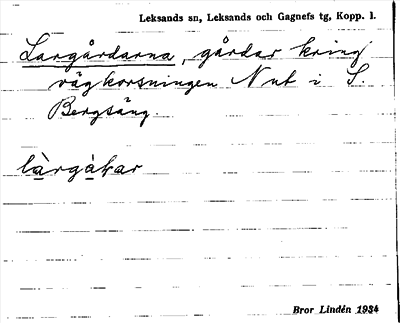 Leksands sn, Leksands och Gagnefs tg, Kopp. l.
Largårdarna, gårdar kring
vägkorsningen Nut i S.
Bergsäng
làrgàkar
Bror Lindén 1934